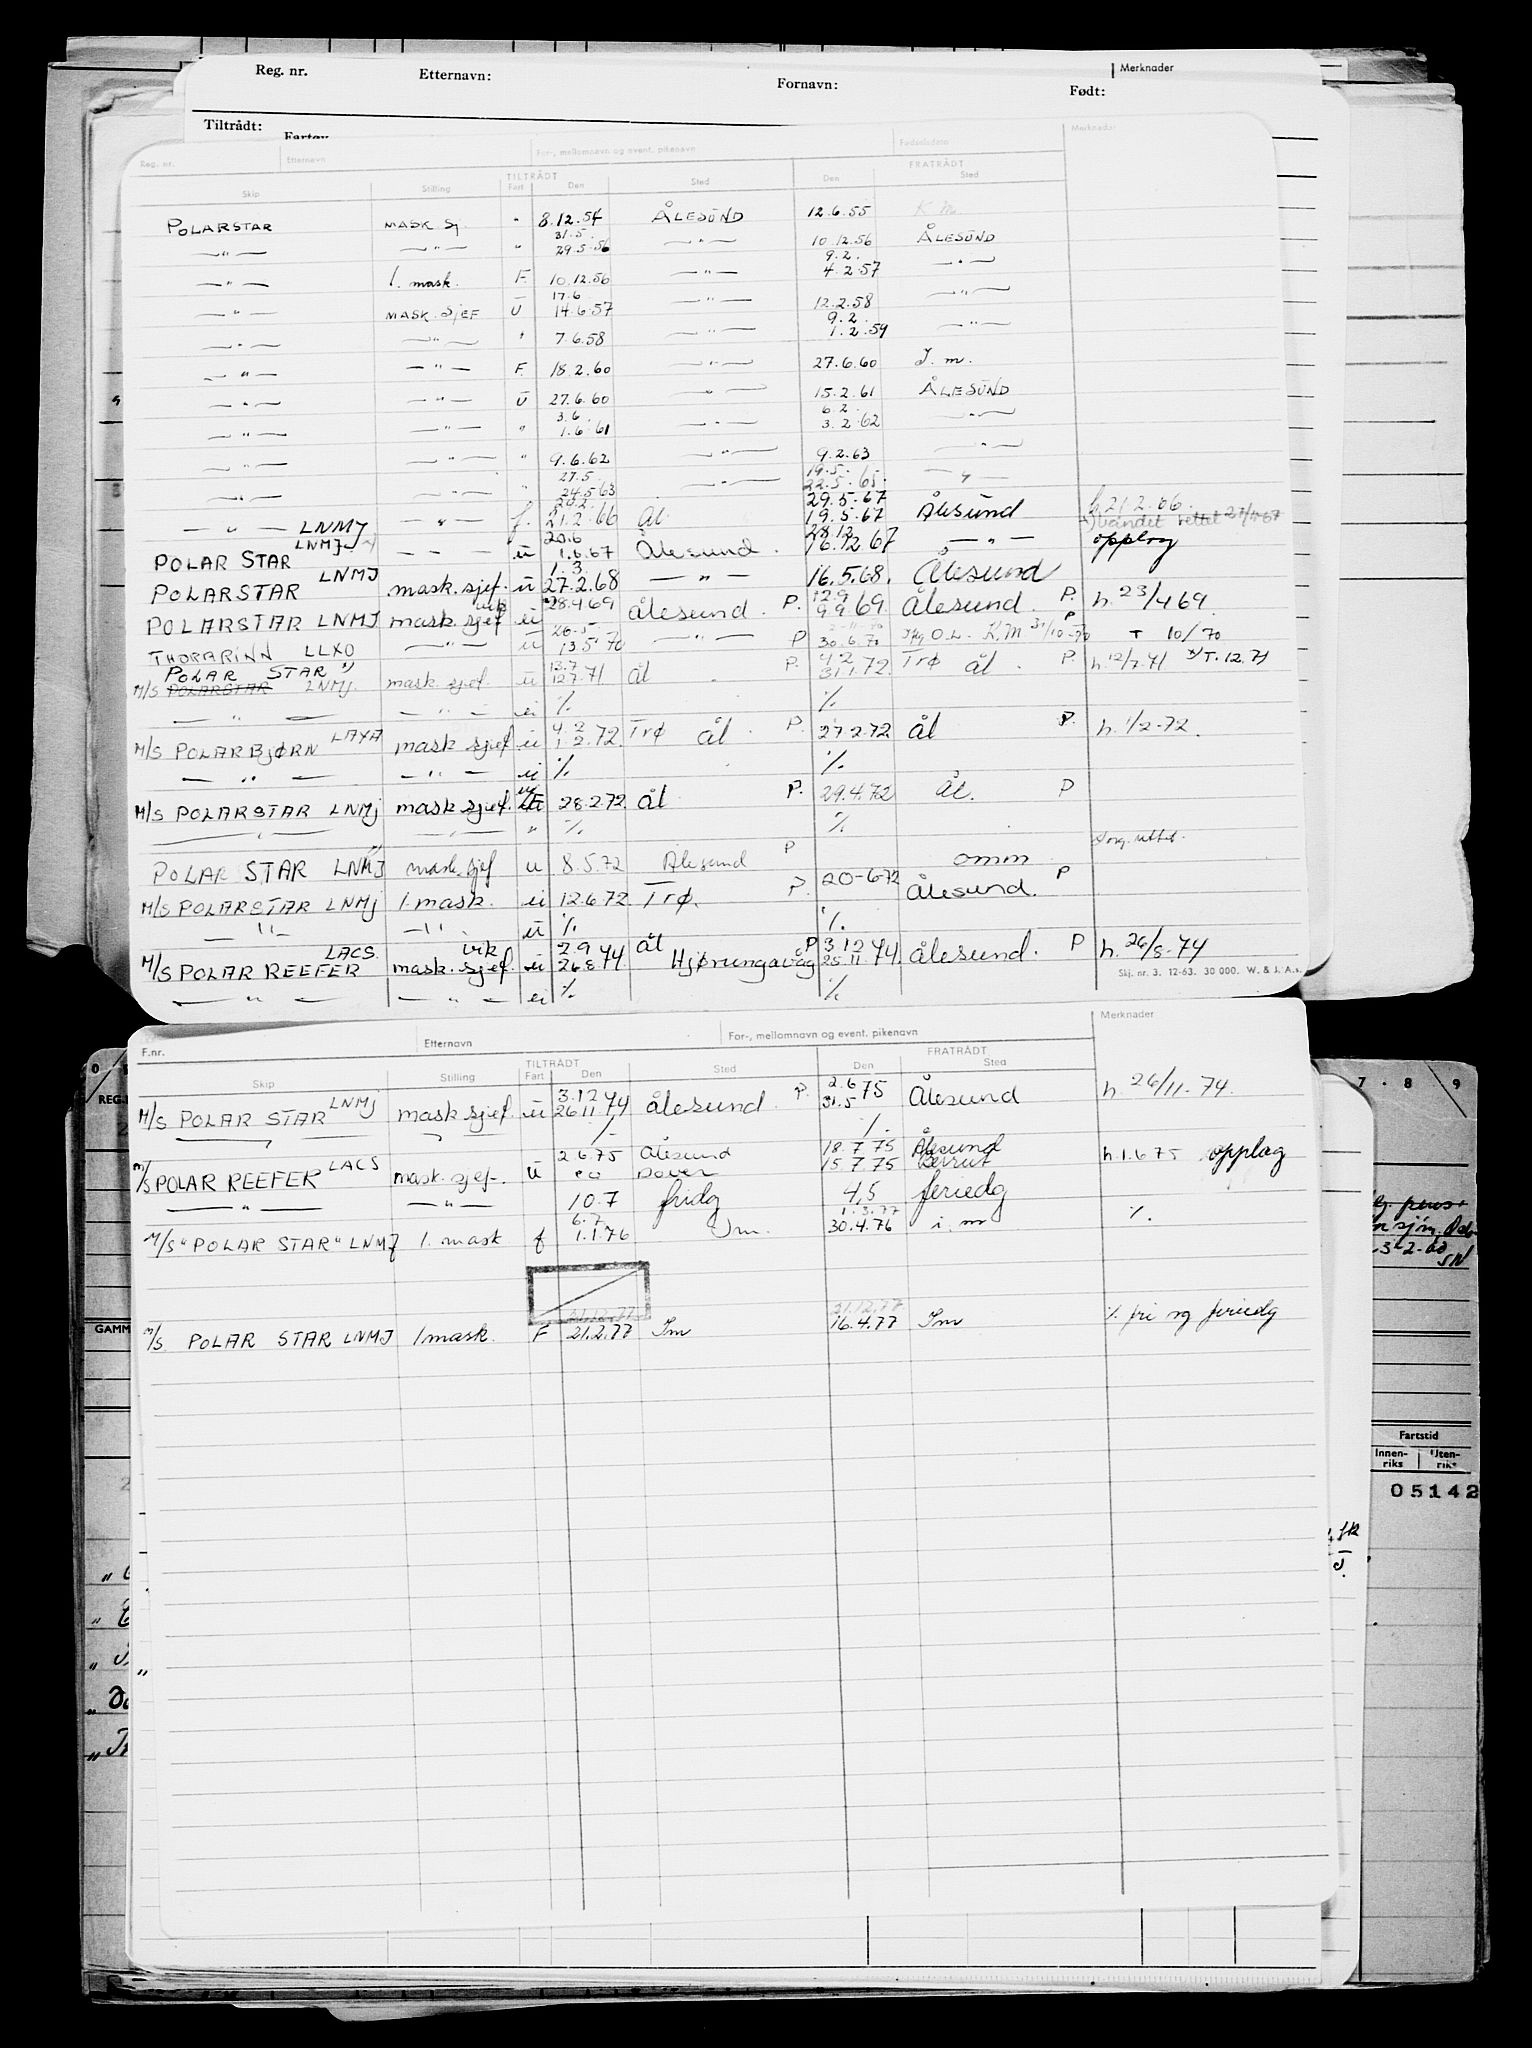 Reg. nr. Etternavn: Fornavn: Født: Merknader
Tiltrådt: Fartøy
Reg. nr. Etternavn For-, mellomnavn og event. pikenavn Fødselsdato Merknader
TILTRÅDT FRATRÅDT
Skip Stilling Fart Den Sted Den Sted
POLARSTAR MASK. Sj. " 8.12.54 ÅLESUND 12.6.55 K M
31.5.
—"— —"— " 29.5.56 —"— 10.12.56 ÅLESUND
9.2.
—"— 1. mask. F. 10.12.56 —"— 4.2.57 —"—
17.6
—"— MASK. SJEF U 14.6.57 —"— 12.2.58 —"—
9.2.
—"— —"— " 7.6.58 —"— 1.2.59 —"—
—"— —"— F. 18.2.60 —"— 27.6.60 I. m.
—"— —"— U 27.6.60 —"— 15.2.61 ÅLESUND
3.6. 6.2.
—"— —"— " 1.6.61 —"— 3.2.62 —"—
—"— —"— " 9.6.62 —"— 9.2.63 —"—
27.5. 19.5.
—"— —"— " 24.5.63 —"— 22.5.65. —"—
29.5.67
—"— LNMJ —"— f. 21.2.66 Ål. 19.5.67 Ålesund h. 21 2.06.
20.6 28.12
POLAR STAR LNMJ — " — ü 1.6.67 Ålesund. 16.12 67 —"— opplag
1.3.
POLARSTAR LNMJ mask. sjef. ü 27.2.68 —"— 16.5.68. Ålesund
vik 12.9
POLARSTAR LNMJ mask. sjef ü 28.4.69 Ålesund. P. 9.9.69. Ålesund. P. h. 23/4 69.
26.5
THORARINN LLXO —"— ü 13.5.70 —"— P 30.6.70 K.M 31/10-70 P T 10/70
POLAR STAR 13.7 4.2
M/S POLARSTAR LNMJ. mask. sjef. ü 12.7.71 ål P. 31.1.72. Trø ål. P. h. 12/7.71 T. 12.71
—"— —"— ei % %
4.2
M/S POLARBJØRN LAXA mask sjef. ü 1.2.72. Trø ål. P. 27.2.72 ål P. h. 1/2-72.
—"— —"— ei % %
M/S POLARSTAR LNMJ mask sjef. ü 28.2.72. ål P. 29.4.72 ål. P
—"— —"— " % %
POLAR STAR LNMJ mask. sjef ü 8.5.72 Ålesund P omm
M/S POLARSTAR LNMJ 1. mask. ei 12.6.72 Trø. P. 20-6-72 Ålesund. P
—"— —"— ü % %
LACS. vik 2.9 ål P 3.12
M/S POLAR REEFER mask. sjef. ü 26.8 74 Hjørungavåg 25.11.74. Ålesund. P h. 26/8-74
—"— —"— ei % %
Skj. nr. 3. 12-63. 30 000. W. & J. A.s.
F.nr. Etternavn For-, mellomnavn og event. pikenavn Merknader
TILTRÅDT FRATRÅDT
Skip Stilling Fart Den Sted Den Sted
3.12 2.6
M/S POLAR STAR LNMJ mask sjef. ü 26.11 74 Ålesund. P. 31.5 75 Ålesund h. 26/11-74.
—"— —"— % %
2.6.75 Ålesund 18.7.75 Ålesund
M/S POLAR REEFER LACS mask. sjef. ü Dover 15.7.75 h. 1.6 75 opplag
—"— —"— 10.7 fridg 4,5 feriedg
6.7. 1.3.77
M/S "POLAR STAR" LNMJ 1. mask f 1.1.76 Im. 30.4.76 i. m %.
31.12.77 31.12.77
M/S. POLAR STAR LNMJ 1 mask. F 21.2.77 Im 16.4.77 Im % fri og feriedg
0 7 · 8 / 9
REG.
GAMM
3-2-60
SN
Fartstid
Innen-riks Uten-riks
05142